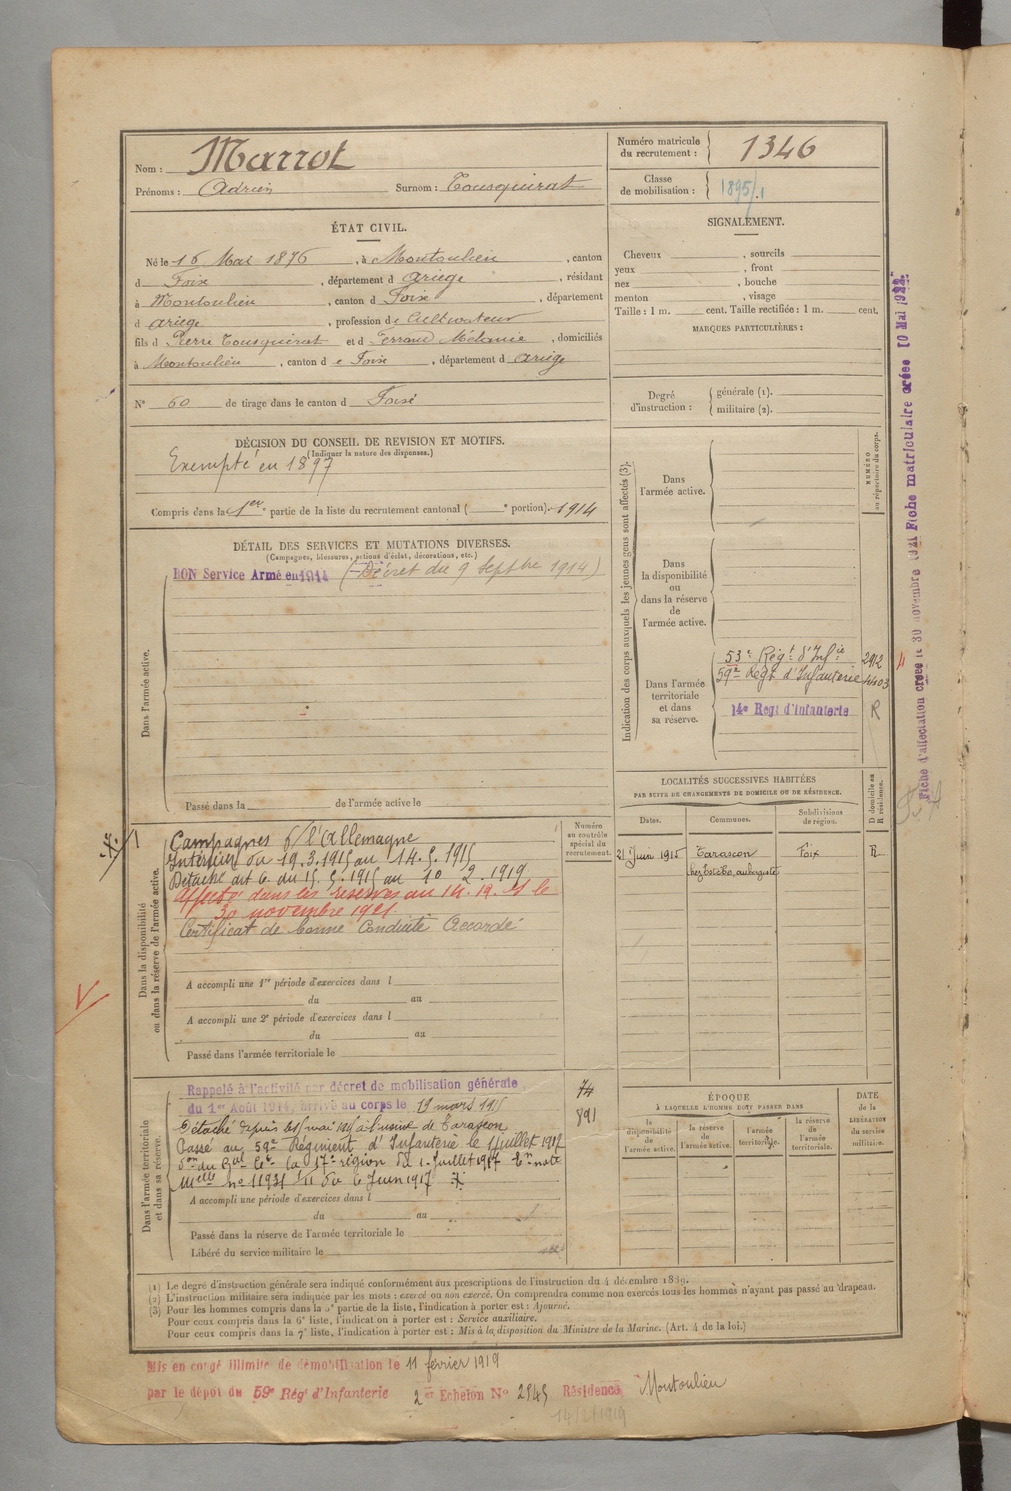 Nom : Marrot
Prénoms : Adrien Surnom : Tousquirat
Numéro matricule
du recrutement : 1346
Classe
de mobilisation : 1895/.1
ÉTAT CIVIL.
Né le 16 Mai 1876, à Montoulieu, canton
d Foix, département d Ariège, résidant
à Montoulieu, canton d Foix, département
d Ariège, profession de Cultivateur
fils d Pierre Tousquirat et d Ferrand Mélanie, domiciliés
à Montoulieu, canton de Foix, département d Ariège
N° 60 de tirage dans le canton d Foix
SIGNALEMENT.
Cheveux , sourcils
yeux , front
nez , bouche
menton , visage
Taille : 1 m. cent. Taille rectifiée : 1 m. cent.
MARQUES PARTICULIÈRES :
Degré
d'instruction :
générale (1).
militaire (2).
DÉCISION DU CONSEIL DE REVISION ET MOTIFS.
(Indiquer la nature des dispenses.)
Exempté en 1897
Compris dans la 1ere partie de la liste du recrutement cantonal ( e portion). 1914
DÉTAIL DES SERVICES ET MUTATIONS DIVERSES.
(Campagnes, blessures, actions d'éclat, décorations, etc.)
BON Service Armé en 1914 (Décret du 9 Septbre 1914)
Dans l'armée active.
Passé dans la de l'armée active le
Indication des corps auxquels les jeunes gens sont affectés (3).
NUMÉRO
au répertoire du corps.
Dans
l'armée active.
Dans
la disponibilité
ou
dans la réserve
de
l'armée active.
Dans l'armée
territoriale
et dans
sa réserve.
53e Régt d'Infie 2912
59e Régt d'Infanterie 4403
14e Régt d'Infanterie R
Fiche d'affectation créée le 30 novembre 1921 Fiche matriculaire créée 10 Mai 1922
LOCALITÉS SUCCESSIVES HABITÉES
PAR SUITE DE CHANGEMENTS DE DOMICILE OU DE RÉSIDENCE.
D domicile ou
R résidence.
Dates.
Communes.
Subdivisions
de région.
21 Juin 1915 Tarascon Foix R
aubergiste
Numéro
au contrôle
spécial du
recrutement.
Dans la disponibilité
ou dans la réserve de l'armée active.
Campagnes c/ l'Allemagne
Intérieur du 19.3.1915 au 14.5.1915
Détaché art 6. du 15.5.1915 au 10 2.1919
Affecté dans les réserves au 14.
30 novembre 1921.
Certificat de bonne Conduite Accordé
A accompli une 1re période d'exercices dans l
du au
A accompli une 2e période d'exercices dans l
du au
Passé dans l'armée territoriale le
Dans l'armée territoriale
et dans sa réserve.
Rappelé à l'activité par décret de mobilisation générale 74
du 1er Août 1914, arrivé au corps le 19 mars 1915 891
Détaché depuis le 15 mai 1915 à l'usine de Tarascon
Passé au 59e Régiment d'Infanterie le 1 juillet 1917
la 17e région du 1 Juillet 1917 note
Melle no 11931 du 6 Juin 1917
A accompli une période d'exercices dans l
du au
Passé dans la réserve de l'armée territoriale le
Libéré du service militaire le
ÉPOQUE
À LAQUELLE L'HOMME DOIT PASSER DANS
la
disponibilité
de
l'armée active.
la réserve
de
l'armée active.
l'armée
territoriale.
la réserve
de
l'armée
territoriale.
DATE
de la
LIBÉRATION
du service
militaire.
(1) Le degré d'instruction générale sera indiqué conformément aux prescriptions de l'instruction du 4 décembre 1889.
(2) L'instruction militaire sera indiquée par les mots : exercé ou non exercé. On comprendra comme non exercés tous les hommes n'ayant pas passé au drapeau.
(3) Pour les hommes compris dans la 5e partie de la liste, l'indication à porter est : Ajourné.
Pour ceux compris dans la 6e liste, l'indication à porter est : Service auxiliaire.
Pour ceux compris dans la 7e liste, l'indication à porter est : Mis à la disposition du Ministre de la Marine. (Art. 4 de la loi.)
Mis en congé illimité de démobilisation le 11 février 1919
par le dépôt du 59e Régt d'Infanterie 2er Echelon N° 2545 Résidence Montoulieu
14/2/1919